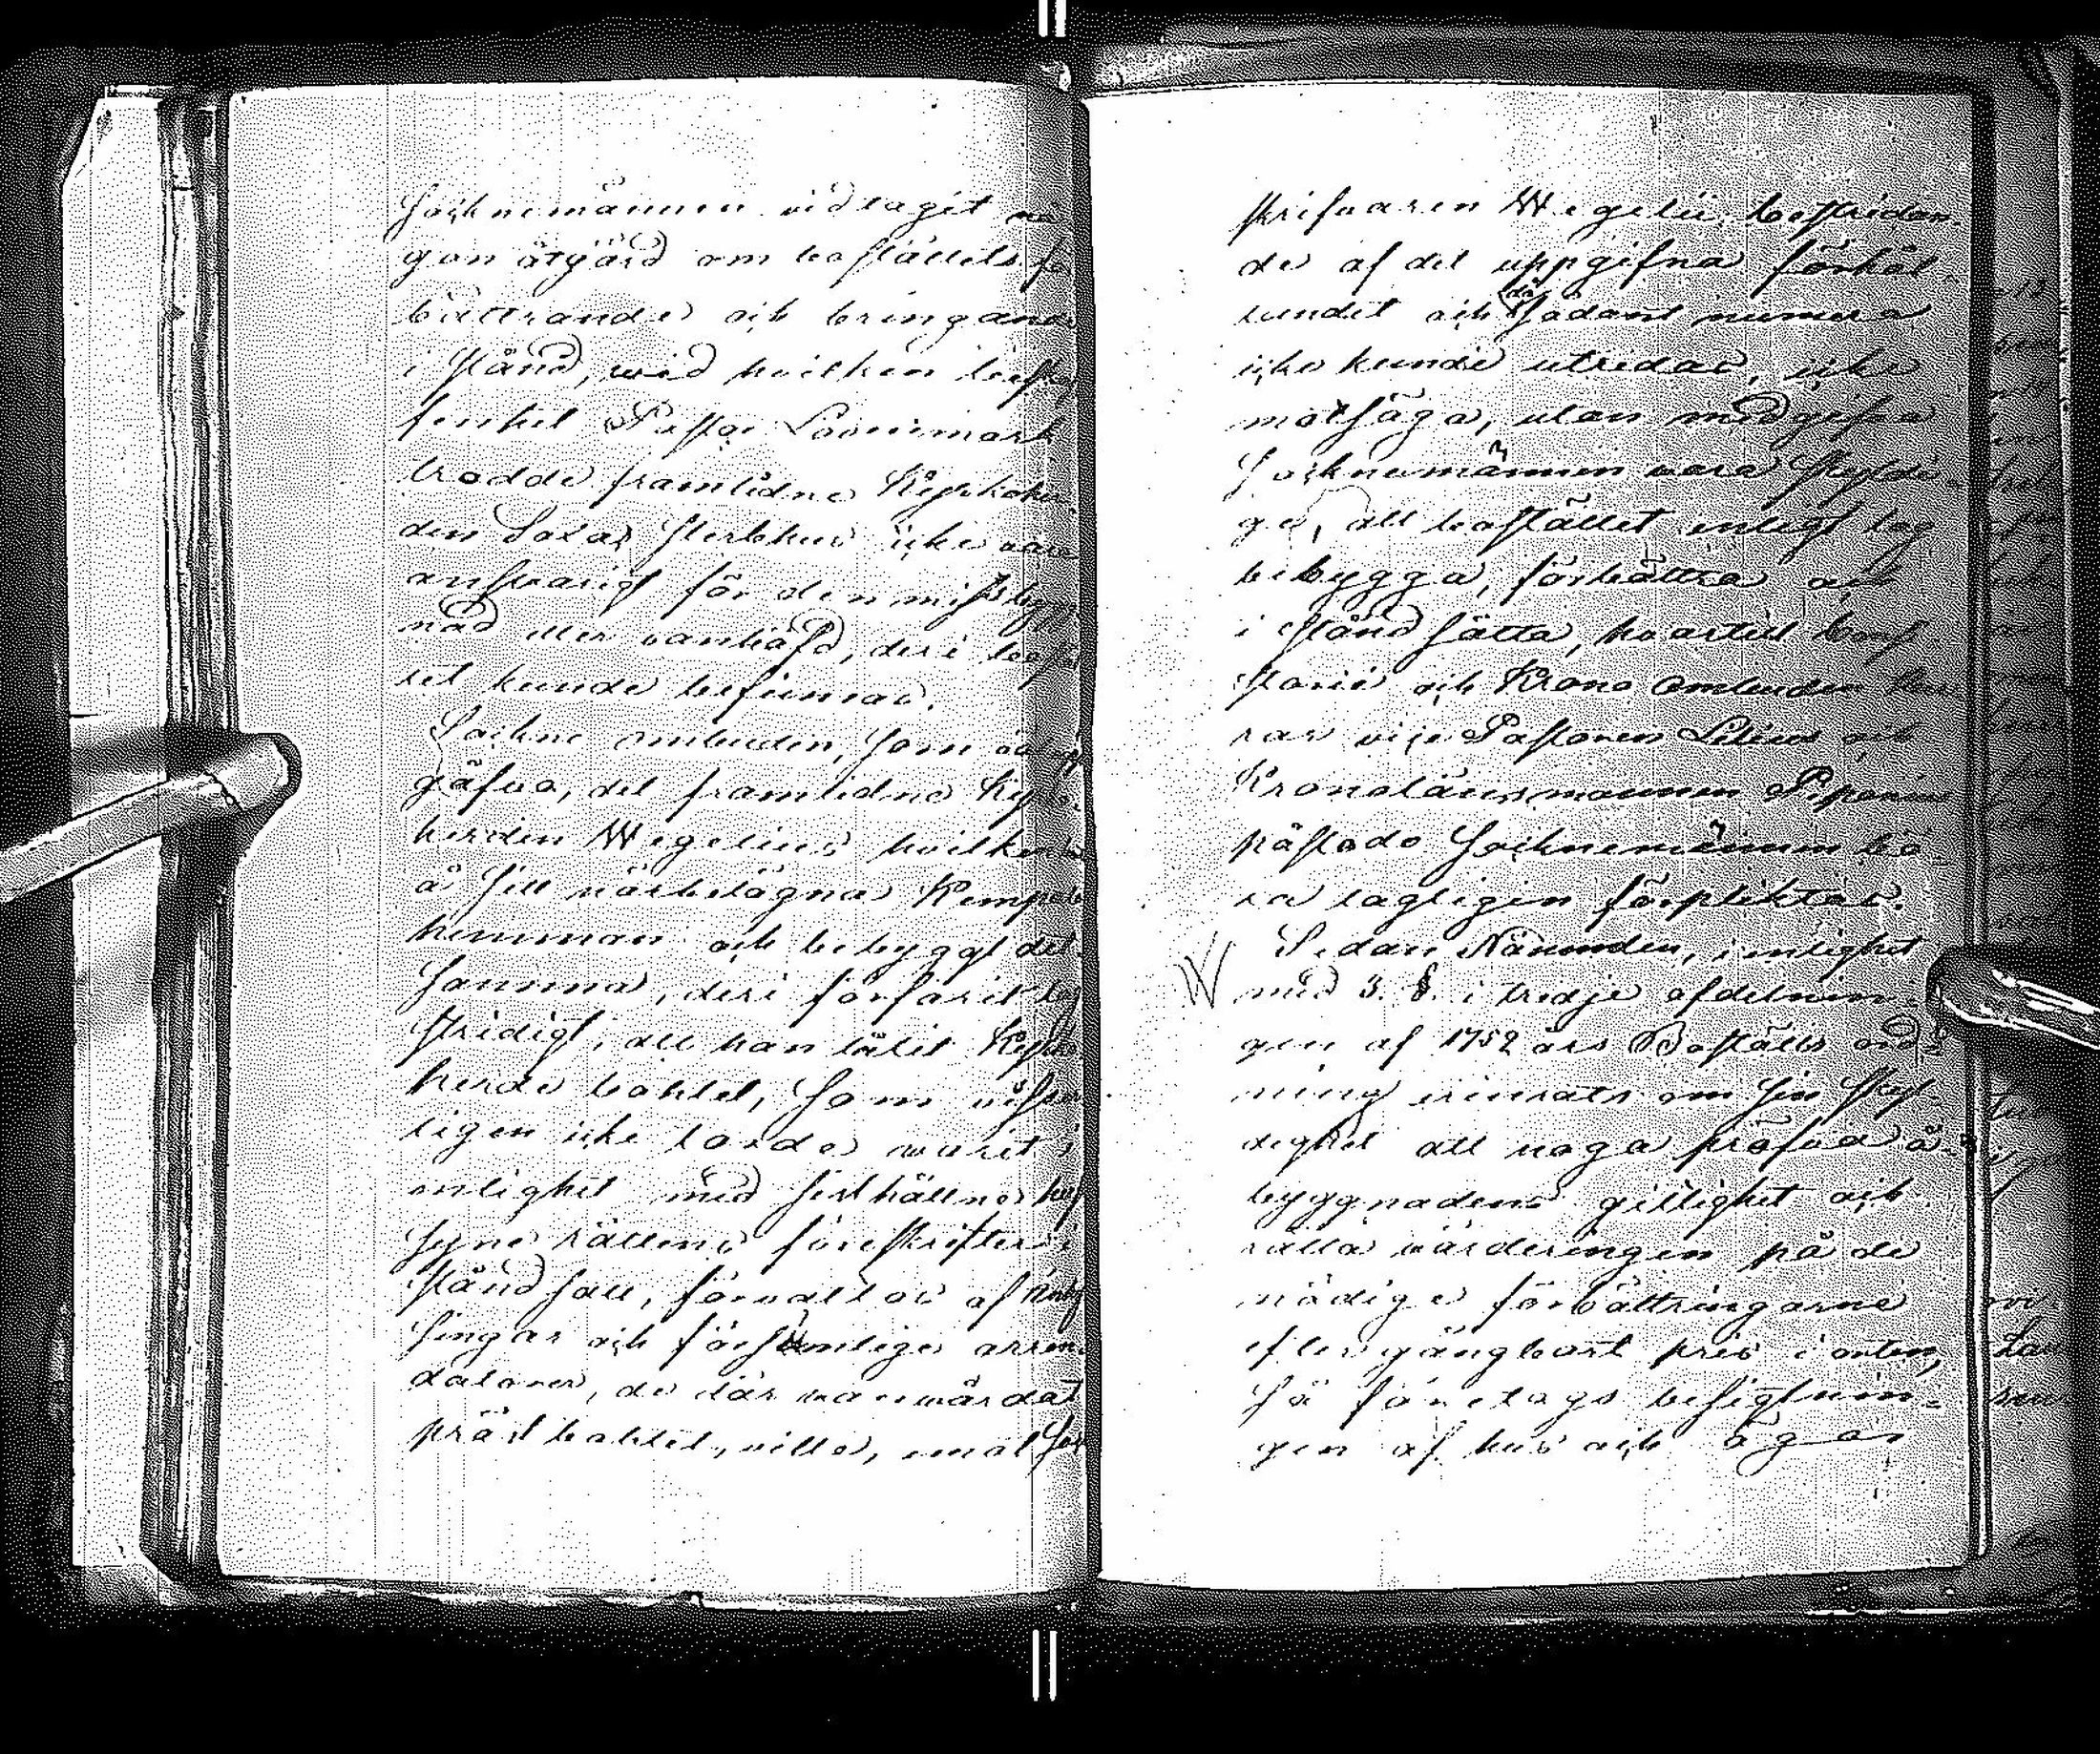 Socknemännen vidtagit nå
gon åtgärd om boställets för
bättrande och bringande
i stånd, wid hvilken beskaf
fenhet Pastor
trodde framlidne Kyrkoher
den Sterbhus icke vara
ansvarigt för den missbygg
nad eller vanhäfd, deri bost
let kunde befinnas.
Sockne ombuden, som
gåfvo, det framlidne Kyrko
herden Wegelius, hvilken
å sitt närbelägna Kempele
hemman och bebyggt det
samma, deri förfarit lag
stridigt, att han låtit Kyrko
herde bohlet, som visser
ligen icke torde warit i
enlighet med sisthållne hus
syne rättens föreskrifter i
stånd satt, förvaltas af Inhy
singar och försumlige arren
datorer, de där vanwårdat
präst bohlet, ville, emot
skrifvaren Wegelii bestridan-
de af det uppgifna förhål-
landet och då sådant numera
icke kunde utredas, icke
motsäga, utan medgifva
Socknemännen vara skyldi-
ge, att bostället enligt lag
bebygga, förbättra och
i stånd sätta, hvartill Consi
storii och Krono Ombuden
rar vice Pastoren och
Kronolänsmannen
påstodo Socknemännen bö-
ra lagligen förpliktas.
Sedan Nämnden, i enlighet
med 3. §. i tredje afdelnin-
gen af 1752 års Boställs ord
ning erinrats om sin skyl-
dighet att noga pröfva å-
byggnadens giltighet och
rätta värderingen på de
nödige förbättringarne
efter gångbart pris i orten,
Så företogs besigtnin-
gen af hus och ägor